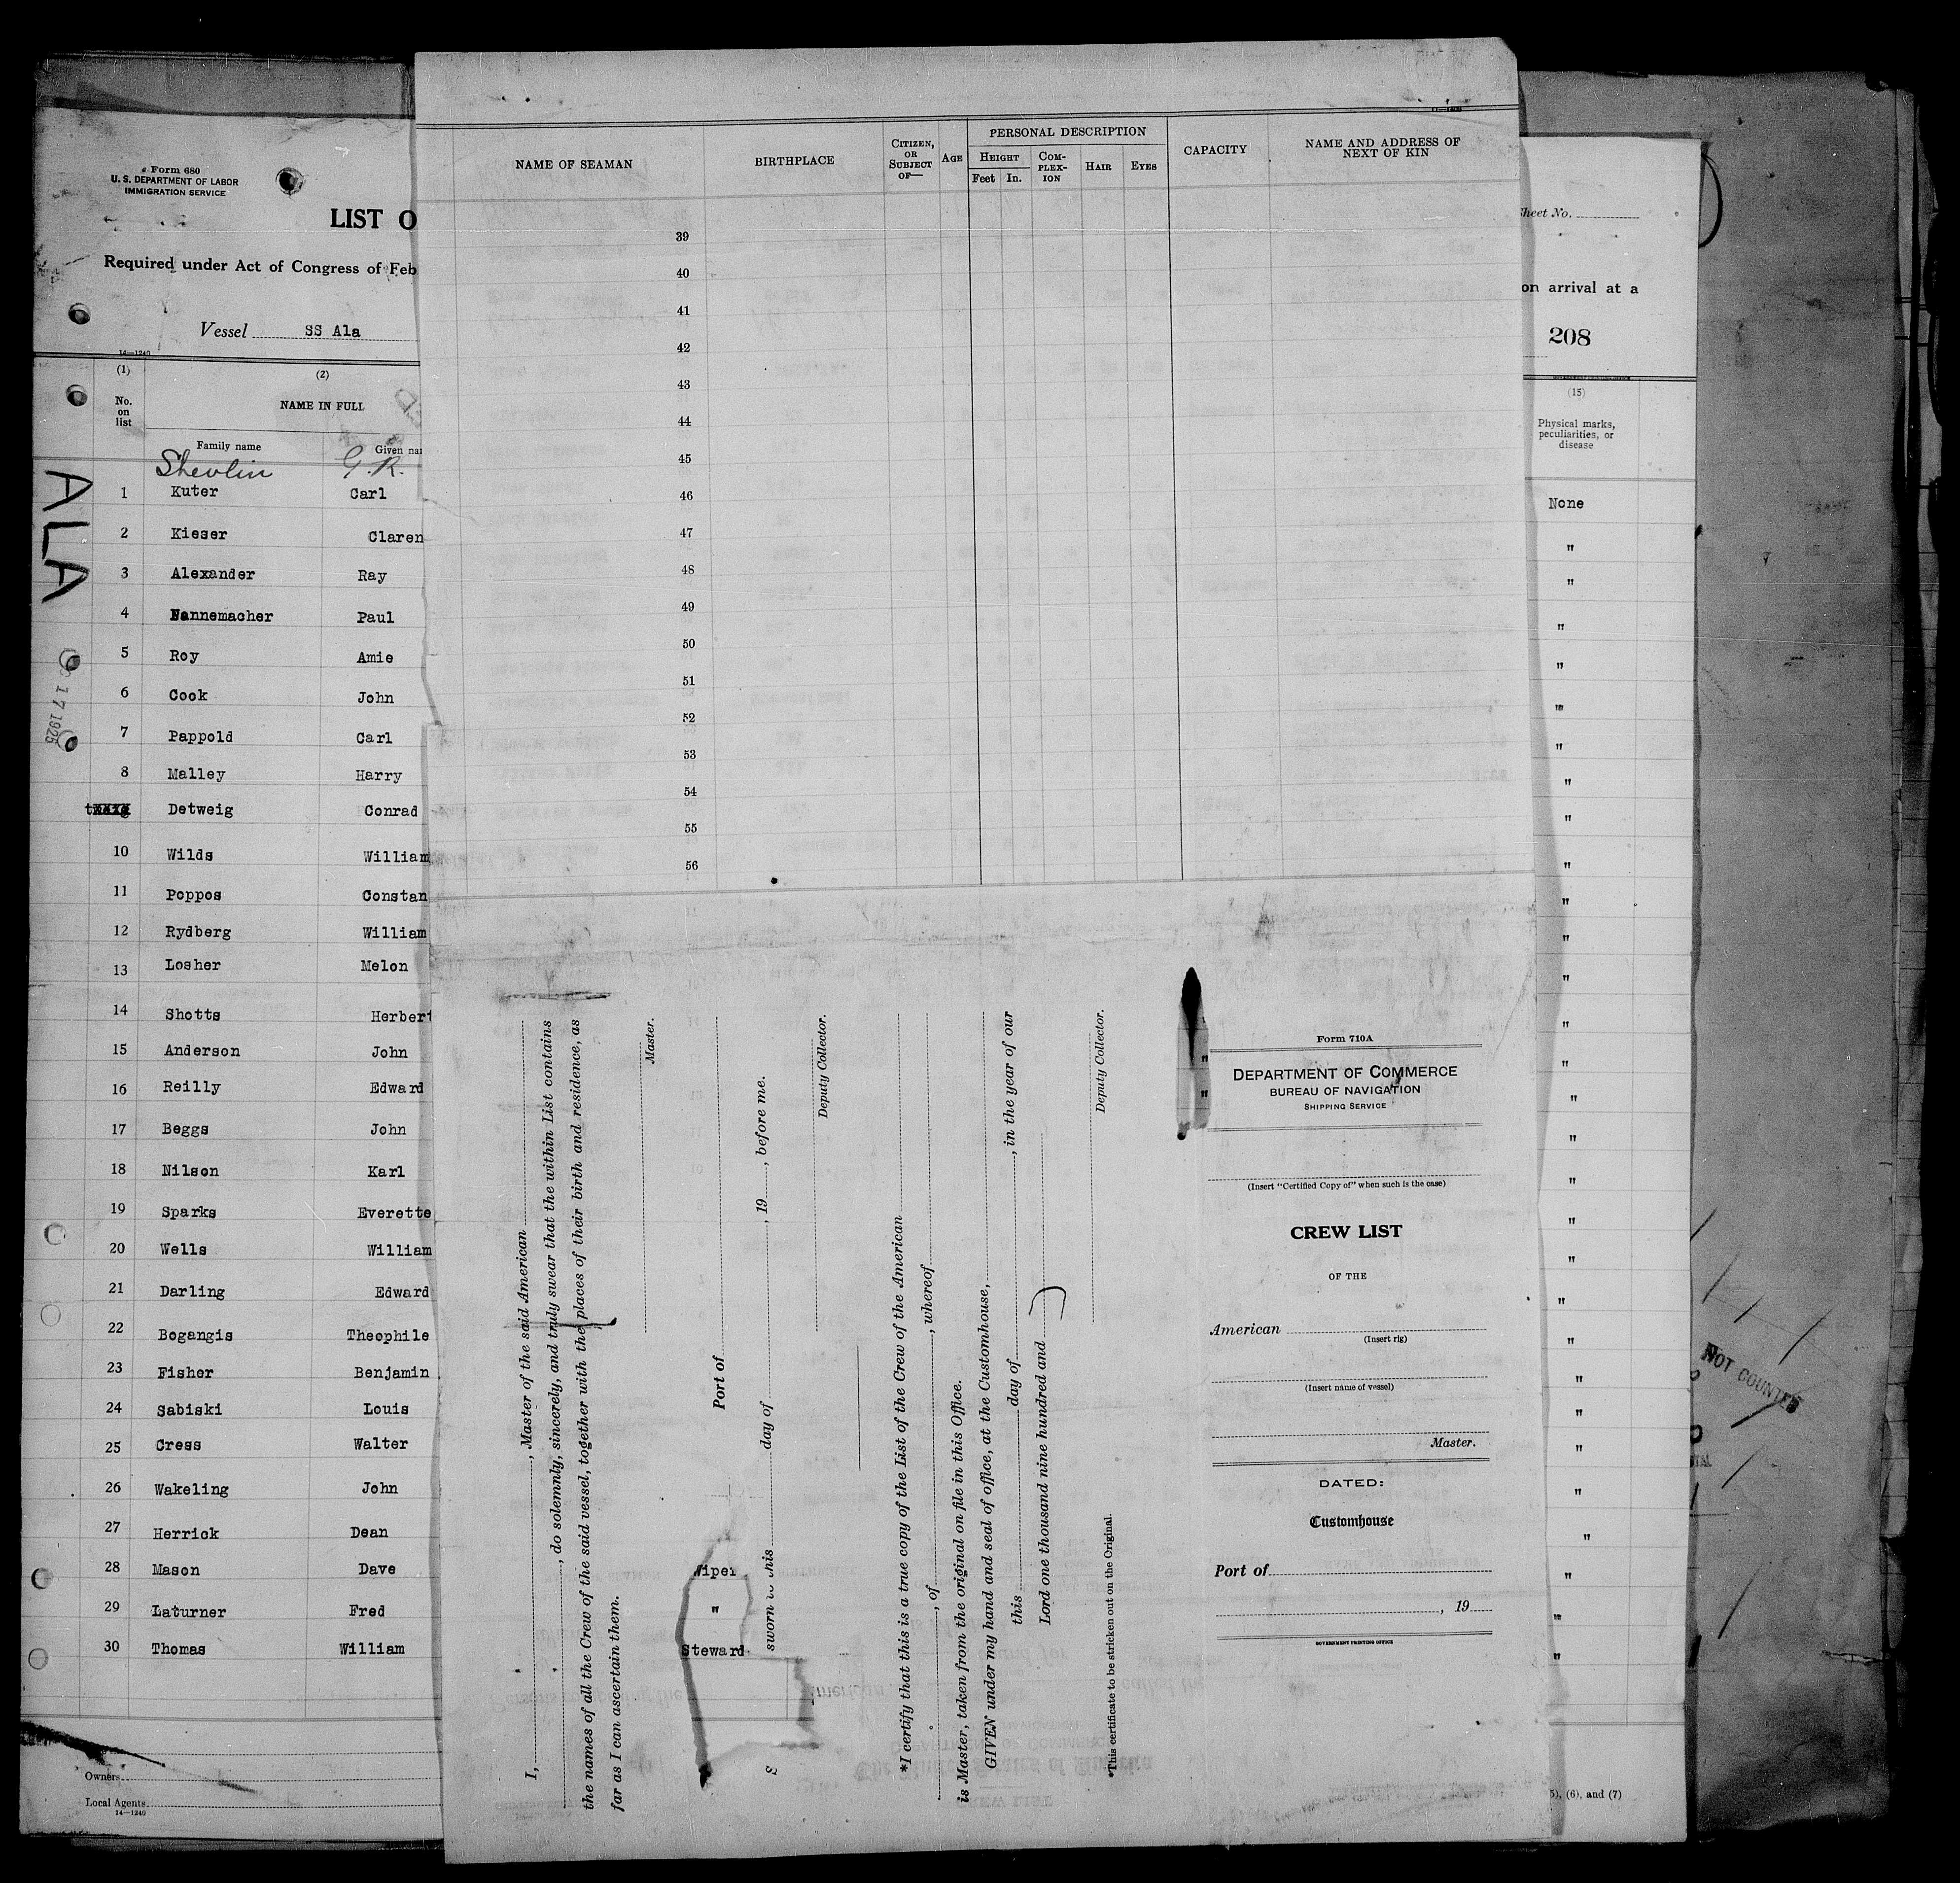 Form 680
U. S. DEPARTMENT OF LABOR
IMMIGRATION SERVICE
LIST O
Required under Act of Congress of Feb
Vessel SS Ala
14—1240
(1) (2)
No. on list
NAME IN FULL
Family name Given na
Shevlin G. R.
1 Kuter Carl
2 Kieser Claren
3 Alexander Ray
4 Nannemacher Paul
5 Roy Amie
6 Cook John
7 Pappold Carl
8 Malley Harry
Detweig Conrad
10 Wilds William
11 Poppos Constan
12 Rydberg William
13 Losher Melon
14 Shotts Herbert
15 Anderson John
16 Reilly Edward
17 Beggs John
18 Nilson Karl
19 Sparks Everette
20 Wells William
21 Darling Edward
22 Bogangis Theophile
23 Fisher Benjamin
24 Sabiski Louis
25 Cress Walter
26 Wakeling John
27 Herrick Dean
28 Mason Dave
29 Laturner Fred
30 Thomas William
Owners
Local Agents
14—1240
ALA
17 1925
NAME OF SEAMAN
BIRTHPLACE
CITIZEN, OR SUBJECT OF—
AGE
PERSONAL DESCRIPTION
HEIGHT
Feet In.
COM-PLEX-ION
HAIR
EYES
CAPACITY
NAME AND ADDRESS OF NEXT OF KIN
39
40
41
42
43
44
45
46
47
48
49
50
51
52
53
54
55
56
I, , Master of the said American
, do solemnly, sincerely, and truly swear that the within List contains
the names of all the Crew of the said vessel, together with the places of their birth and residence, as
far as I can ascertain them.
Master.
Port of
sworn to this day of , 19 , before me.
Deputy Collector.
*I certify that this is a true copy of the List of the Crew of the American
, of , whereof
is Master, taken from the original on file in this Office.
GIVEN under my hand and seal of office, at the Customhouse,
this day of , in the year of our
Lord one thousand nine hundred and
Deputy Collector.
*This certificate to be stricken out on the Original.
Wiper
"
Steward
"
"
Form 710A
DEPARTMENT OF COMMERCE
BUREAU OF NAVIGATION
SHIPPING SERVICE
(Insert "Certified Copy of" when such is the case)
CREW LIST
OF THE
American
(Insert rig)
(Insert name of vessel)
Master.
DATED:
Customhouse
Port of
, 19
GOVERNMENT PRINTING OFFICE
Sheet No.
on arrival at a
208
(15)
Physical marks, peculiarities, or disease
None
"
"
"
"
"
"
"
"
"
"
"
"
"
"
"
"
"
"
"
"
"
"
"
"
"
"
"
"
"
5), (6), and (7)
NOT COUNTED